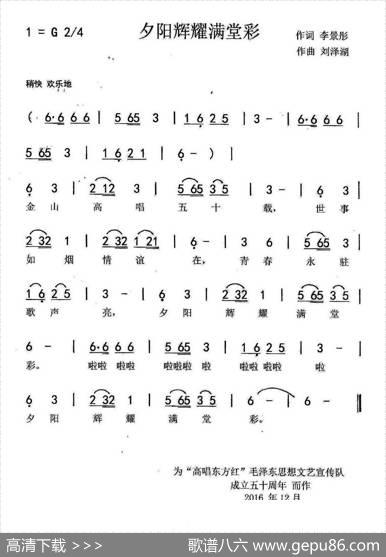 1 = G 2/4
夕阳辉耀满堂彩
作词 李景彤
作曲 刘泽湖
稍快 欢乐地
( 6·6 6 6 | 5 65 3 | 1 6 2 1 5 | 3 - | 6·6 6 6 |
5 65 3 | 1 6 2 1 | 6 - ) |
6 3 | 2 12 3 | 5 65 3 5 | 3 - | 6 3 |
金山 高唱 五十 载, 世事
2 32 1 | 2 32 1 21 | 6 - | 3 6 | 5 65 3 |
如烟 情谊 在, 青春 永驻
1 6 2 5 | 3 - | 6 3 | 2 32 1 | 5 65 3 5 |
歌声 亮, 夕阳 辉耀 满堂
6 - | 6·6 6 6 | 5 65 3 | 1 6 2 1 5 | 3 - |
彩。 啦啦 啦啦 啦啦啦 啦啦 啦啦 啦
6 3 | 2 32 1 | 5 65 3 5 | 6 - | 6 - |
夕阳 辉耀 满堂 彩。
为“高唱东方红”毛泽东思想文艺宣传队
成立五十周年 而作
2016 年 12月
高清下载 >>>
歌谱八六 www.gepu86.com